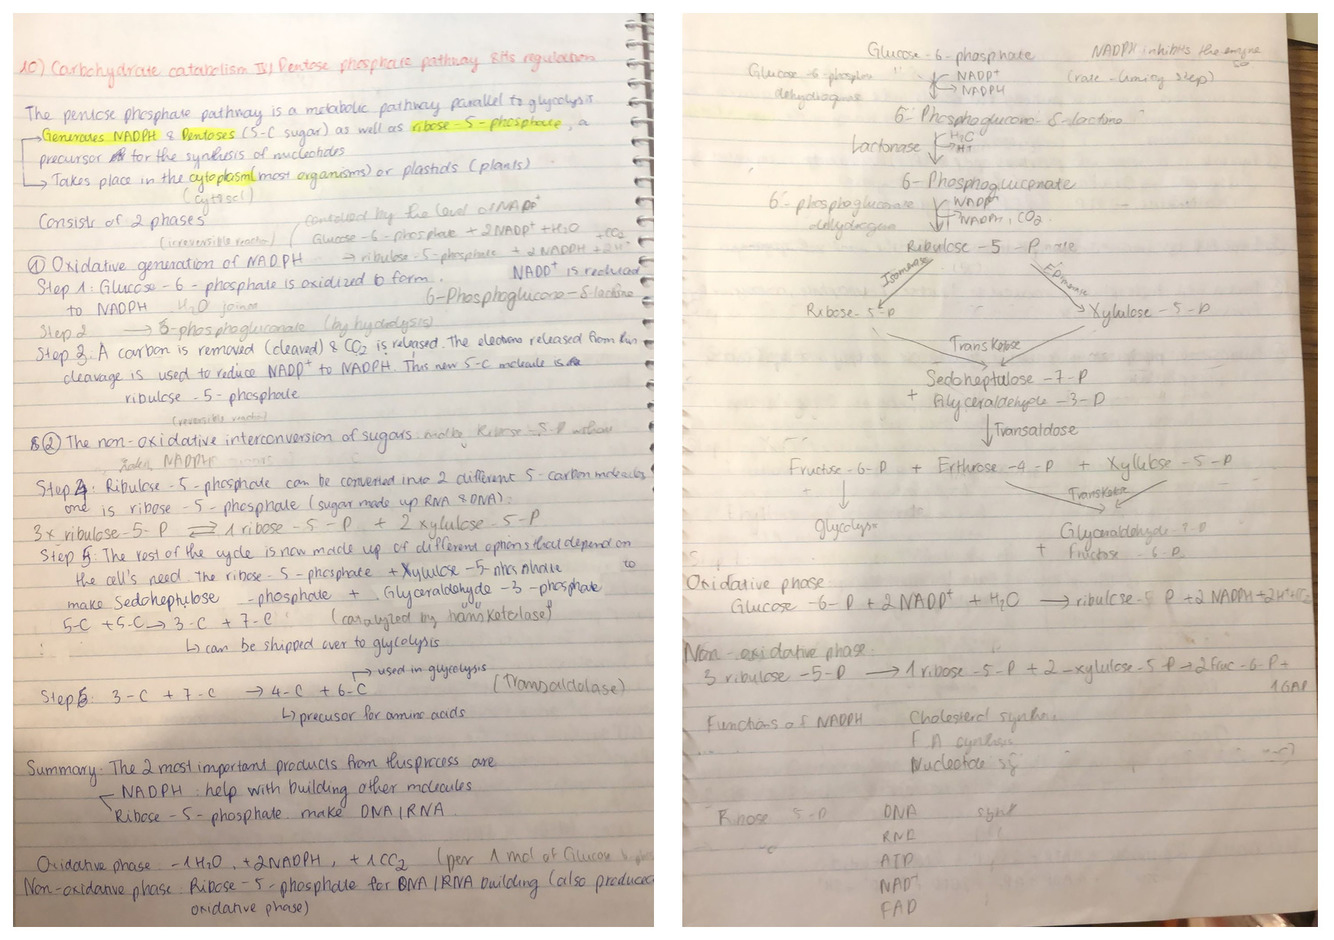 10) Carbohydrate catabolism II, Pentose phosphate pathway & its regulation
The pentose phosphate pathway is a metabolic pathway parallel to glycolysis
→ Generates NADPH & Pentoses (5-C sugar) as well as ribose-5-phosphate, a
precursor for the synthesis of nucleotides
→ Takes place in the cytoplasm (most organisms) or plastids (plants)
(cytosol)
Consists of 2 phases
controlled by the level of NADP+
(irreversible reaction)
Glucose-6-phosphate + 2NADP+ + H2O
→ ribulose-5-phosphate + 2NADPH + 2H+ + CO2
① Oxidative generation of NADPH
NADP+ is reduced
Step 1: Glucose-6-phosphate is oxidized to form
6-Phosphoglucono-δ-lactone
to NADPH H2O joins
Step 2 → 6-phosphogluconate (by hydrolysis)
Step 3: A carbon is removed (cleaved) & CO2 is released. The electrons released from this
cleavage is used to reduce NADP+ to NADPH. This new 5-C molecule is
ribulose-5-phosphate
(reversible reaction)
& ② The non-oxidative interconversion of sugars Ribose-5-P
NADPH
Step 4: Ribulose-5-phosphate can be converted into 2 different 5-carbon molecules
one is ribose-5-phosphate (sugar made up RNA & DNA).
3x ribulose-5-P ⇌ 1 ribose-5-P + 2 xylulose-5-P
Step 5: The rest of the cycle is now made up of different options that depend on
the cell's need. The ribose-5-phosphate + Xylulose-5-phosphate to
make Sedoheptulose -phosphate + Glyceraldehyde-3-phosphate
5-C + 5-C → 3-C + 7-C (catalyzed by transketolase)
↳ can be shipped over to glycolysis
→ used in glycolysis
Step 6: 3-C + 7-C → 4-C + 6-C (Transaldolase)
↳ precusor for amino acids
Summary: The 2 most important products from this process are
NADPH : help with building other molecules
Ribose-5-phosphate make DNA/RNA
Oxidative phase -1H2O, +2NADPH, +1CO2 (per 1 mol of Glucose
Non-oxidative phase: Ribose-5-phosphate for DNA/RNA building (also produced
oxidative phase)
Glucose-6-phosphate NADPH inhibits the enzyme
Glucose-6-phosphate NADP+ (rate-limiting step)
dehydrogenase NADPH
6-Phosphoglucono-δ-lactone
Lactonase H2O
H+
6-Phosphogluconate
6-phosphogluconate NADP+
dehydrogenase NADPH, CO2
Ribulose-5-P
Isomerase Epimerase
Ribose-5-P Xylulose-5-P
Transketose
Sedoheptulose-7-P
+ Glyceraldehyde-3-P
Transaldose
Fructose-6-P + Erthrose-4-P + Xylulose-5-P
+ Transketose
glycolysis Glyceraldehyde-3-P
+ Fructose-6-P
Oxidative phase
Glucose-6-P + 2NADP+ + H2O → ribulose-5-P + 2NADPH + 2H+ + CO2
Non-oxidative phase
3 ribulose-5-P → 1 ribose-5-P + 2-xylulose-5-P → 2 fruc-6-P +
1 GAP
Functions of NADPH Cholesterol synthesis
FA synthesis
Nucleotide
Ribose 5-P DNA
RNA
ATP
NAD+
FAD